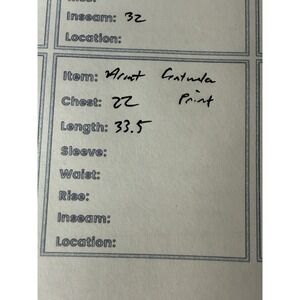 Inseam: 32
Location:
Item:
Chest: 22 Print
Length: 33.5
Sleeve:
Waist:
Rise:
Inseam:
Location: